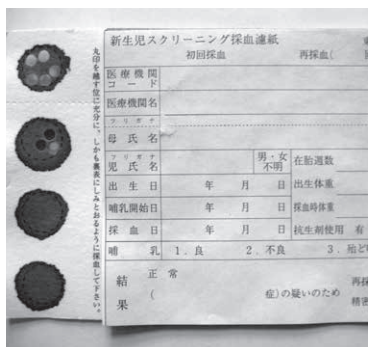 丸印を越す位に充分に、しかも裏表にしみとおるように採血して下さい。
新生児スクリーニング採血濾紙
初回採血 再採血(
医療機関コード
医療機関名
フリガナ
母氏名
フリガナ
児氏名 男・女 不明 在胎週数
出生日 年 月 日 出生体重
哺乳開始日 年 月 日 採血時体重
採血日 年 月 日 抗生剤使用 有
哺乳 1. 良 2. 不良 3. 殆ど
結果 正常 再採
( 症)の疑いのため 精密